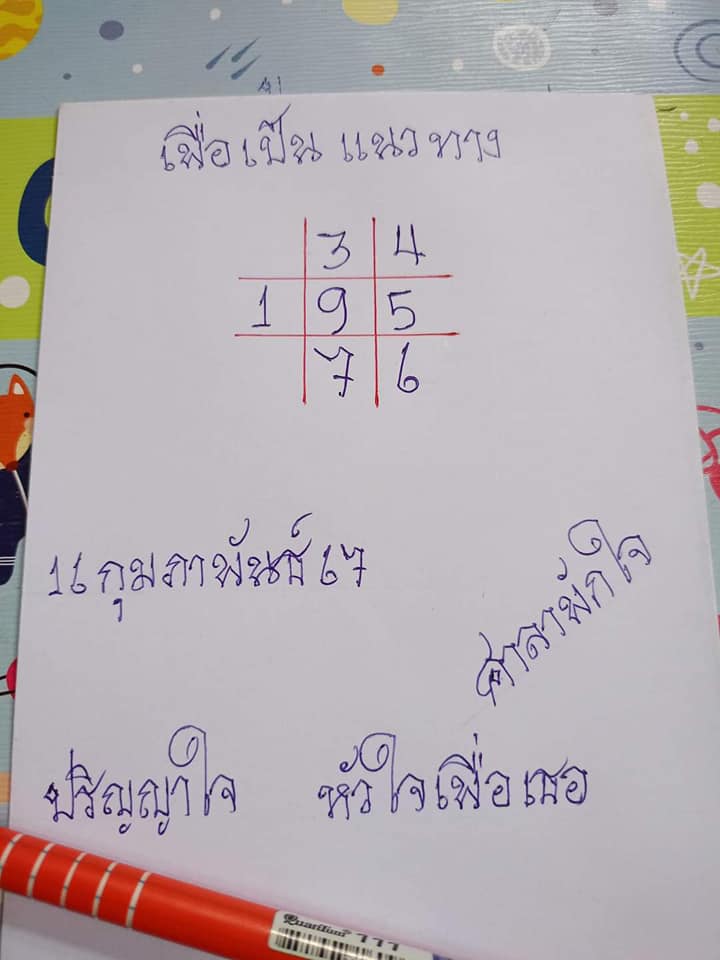 เพื่อเป็นแนวทาง
3 4
1 9 5
7 6
16 กุมภาพันธ์ 67
ศาลาพักใจ
ปริญญาใจ หัวใจเพื่อเธอ
Quantum 777